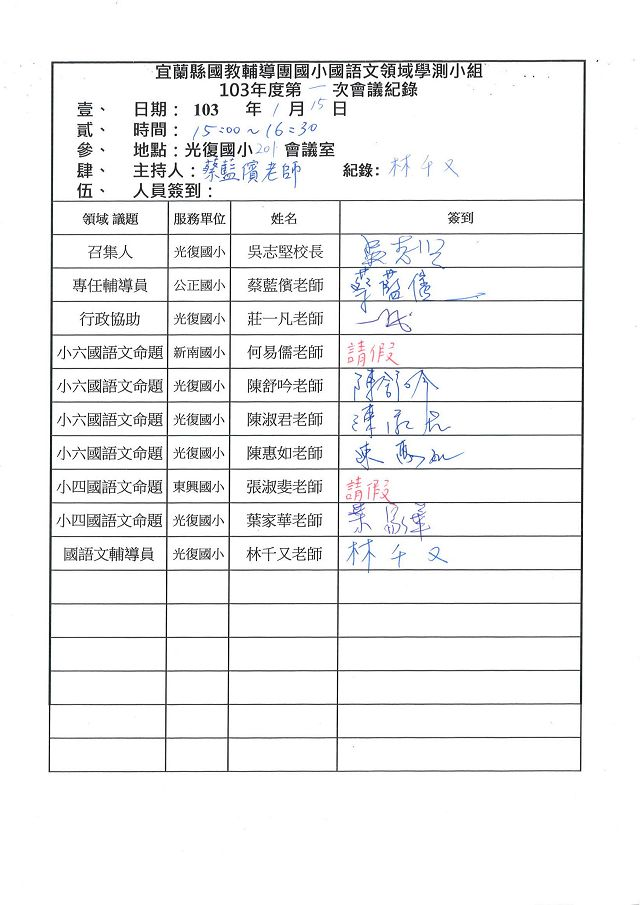 宜蘭縣國教輔導團國小國語文領域學測小組
103年度第一次會議紀錄
壹、 日期：103 年 1 月 15 日
貳、 時間：15:00~16:30
參、 地點：光復國小201會議室
肆、 主持人：蔡藍儐老師 紀錄：林千又
伍、 人員簽到：
領域 議題 服務單位 姓名 簽到
召集人 光復國小 吳志堅校長 吳志堅
專任輔導員 公正國小 蔡藍儐老師 蔡藍儐
行政協助 光復國小 莊一凡老師
小六國語文命題 新南國小 何易儒老師 請假
小六國語文命題 光復國小 陳舒吟老師 陳舒吟
小六國語文命題 光復國小 陳淑君老師 陳淑君
小六國語文命題 光復國小 陳惠如老師 陳惠如
小四國語文命題 東興國小 張淑斐老師 請假
小四國語文命題 光復國小 葉家華老師 葉家華
國語文輔導員 光復國小 林千又老師 林千又